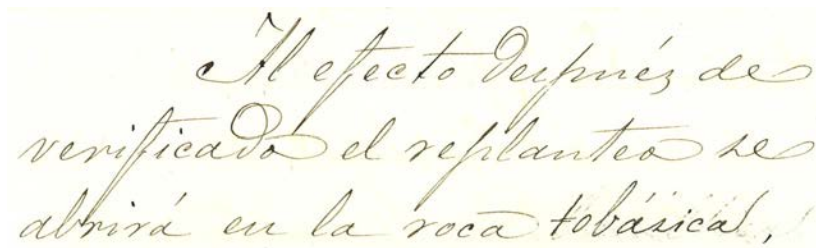 Al efecto después de
verificado el replanteo se
abrirá en la roca tobásica,